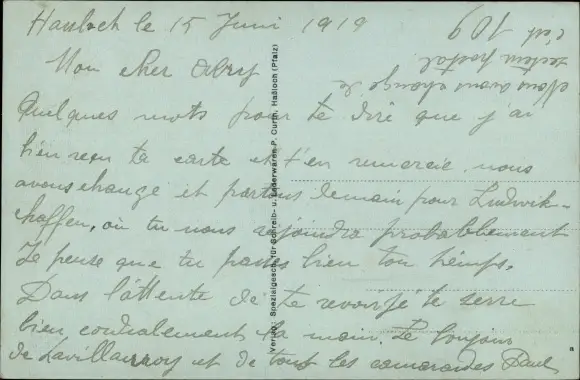 Hassloch le 15 Juni 1919
Mon cher
Quelques mots pour te dire que j'ai
bien reçu ta carte et t'en remercie, nous
avons change et partons demain pour Ludwik-
haffen, où tu nous rejoindra probablement
Je pense que tu passes bien ton temps.
Dans l'attente de te revoir je te serre
bien cordialement la main. Le bonjour
de et de tout les camarades Paul
Nous avons change de
secteur postal
c'est 109
Verlag: Spezialgesch. für Schreib- u. Lederwaren P. Curth, Haßloch (Pfalz)